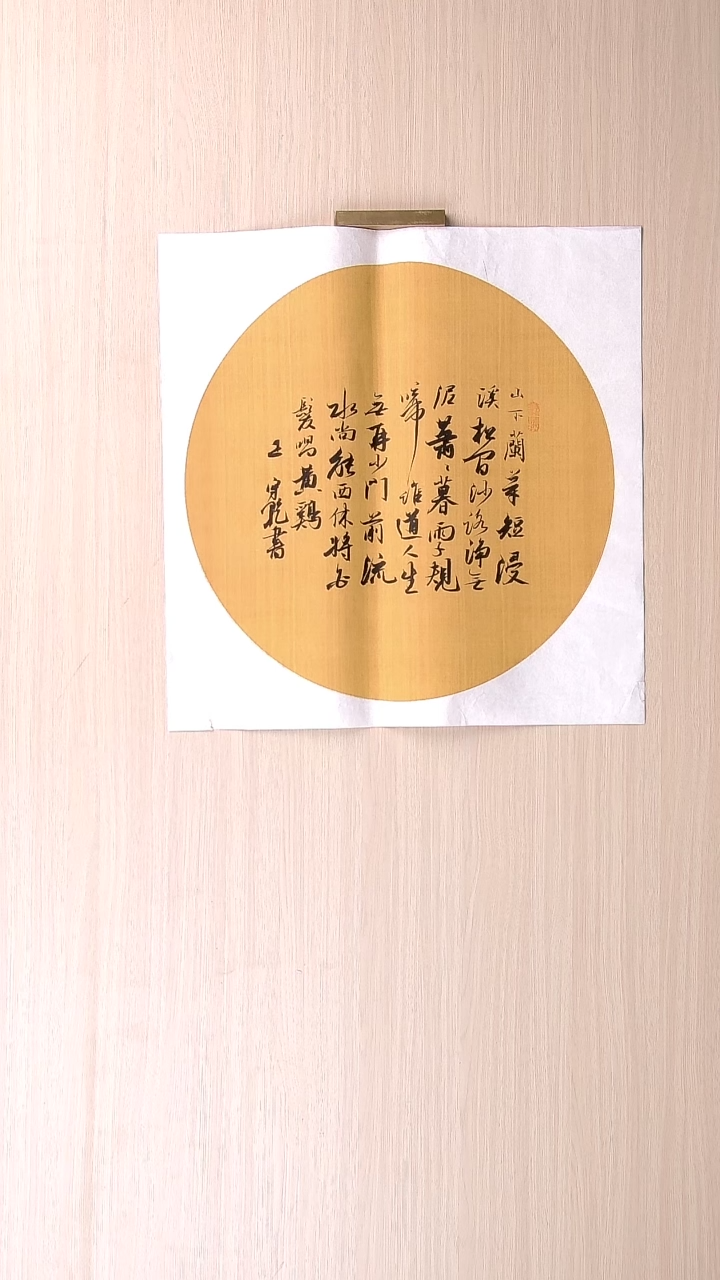 山下蘭芽短浸
溪松間沙路净无
泥蕭々暮雨子規
啼誰道人生
无再少門前流
水尚能西休將白
髮唱黄鷄
王守乾書